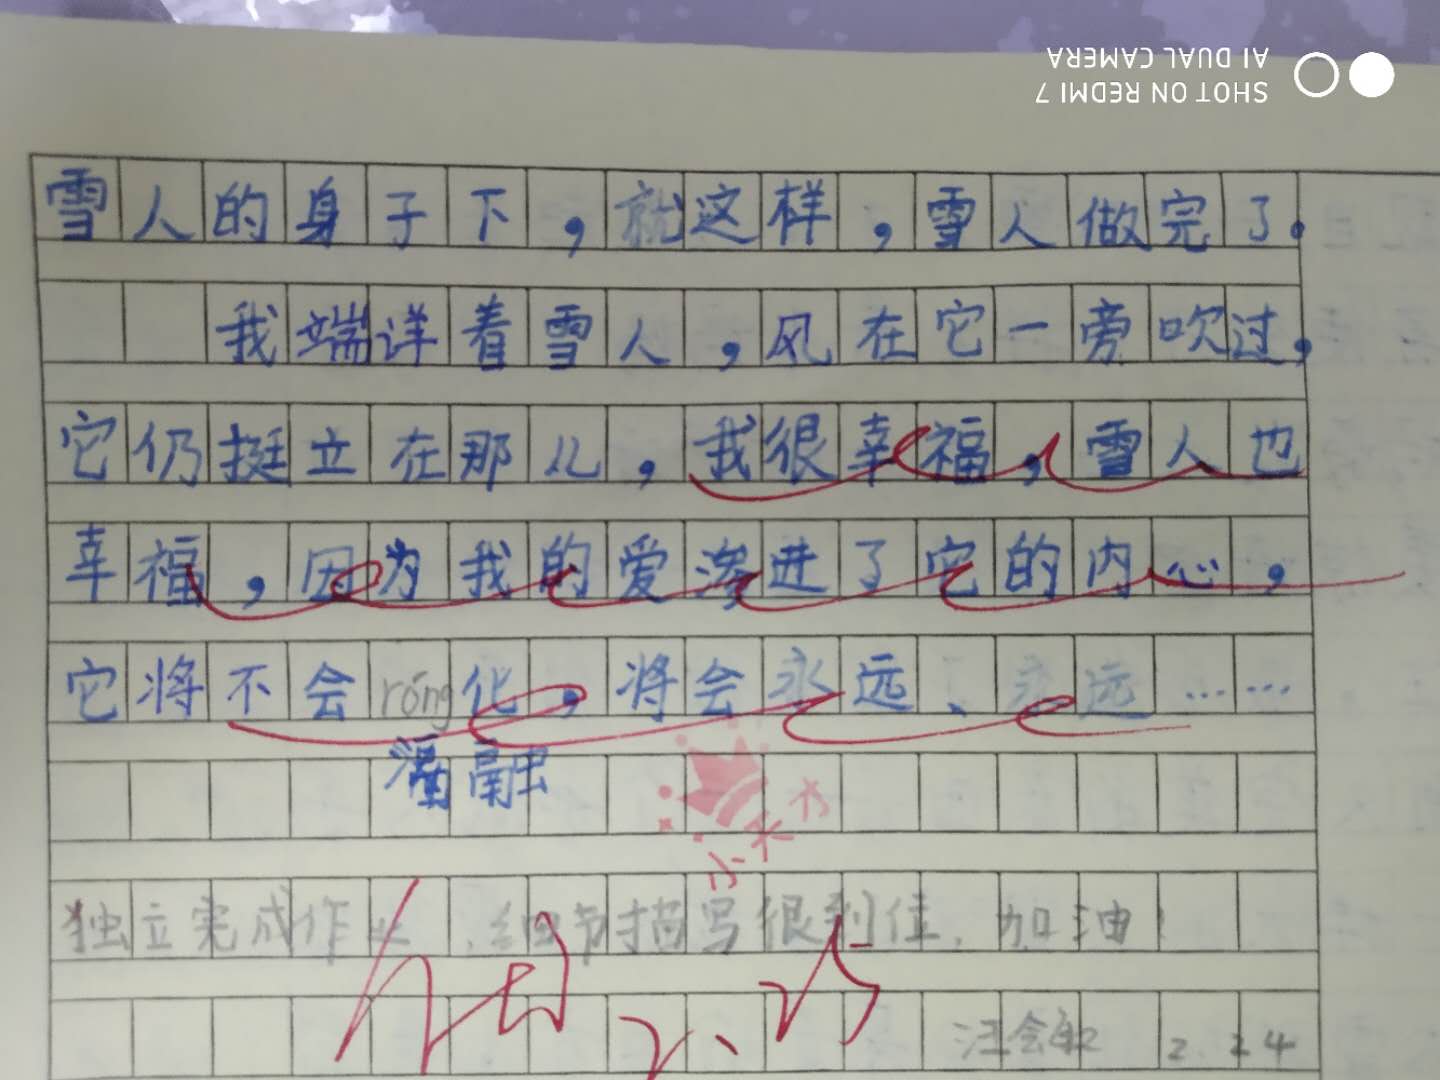 SHOT ON REDMI 7
AI DUAL CAMERA
雪人的身子下，就这样，雪人做完了。
我端详着雪人，风在它一旁吹过，
它仍挺立在那儿，我很幸福，雪人也
幸福，因为我的爱渗进了它的内心，
它将不会róng化，将会永远、永远……
融
小米书
独立完成作业，细节描写很到位，加油！
2.24